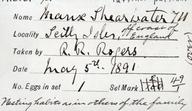 Name Manx Shearwater 711
Locality Scilly Isles Coast of England
Taken by R. R. Rogers
Date May 5th 1891
No. Eggs in set 1 Set Mark 49/1
Nesting habits as in others of the family